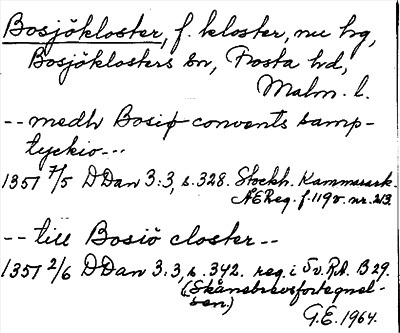 Bosjökloster, f. kloster, nu hg,
Bosjöklosters sn, Frosta hd,
Malm. l.
-- medh Bosiø convents samp-
tyckio---
1351 7/5 DDan 3:3, s. 328. Stockh. Kammarark.
AEReg. f. 119v. nr. 213.
-- till Bosiö closter --
1351 2/6 DDan 3:3, s. 342. reg. i Sv. RA. B 29.
(Skånebrevsfortegnel-
sen.)
G.E. 1964.